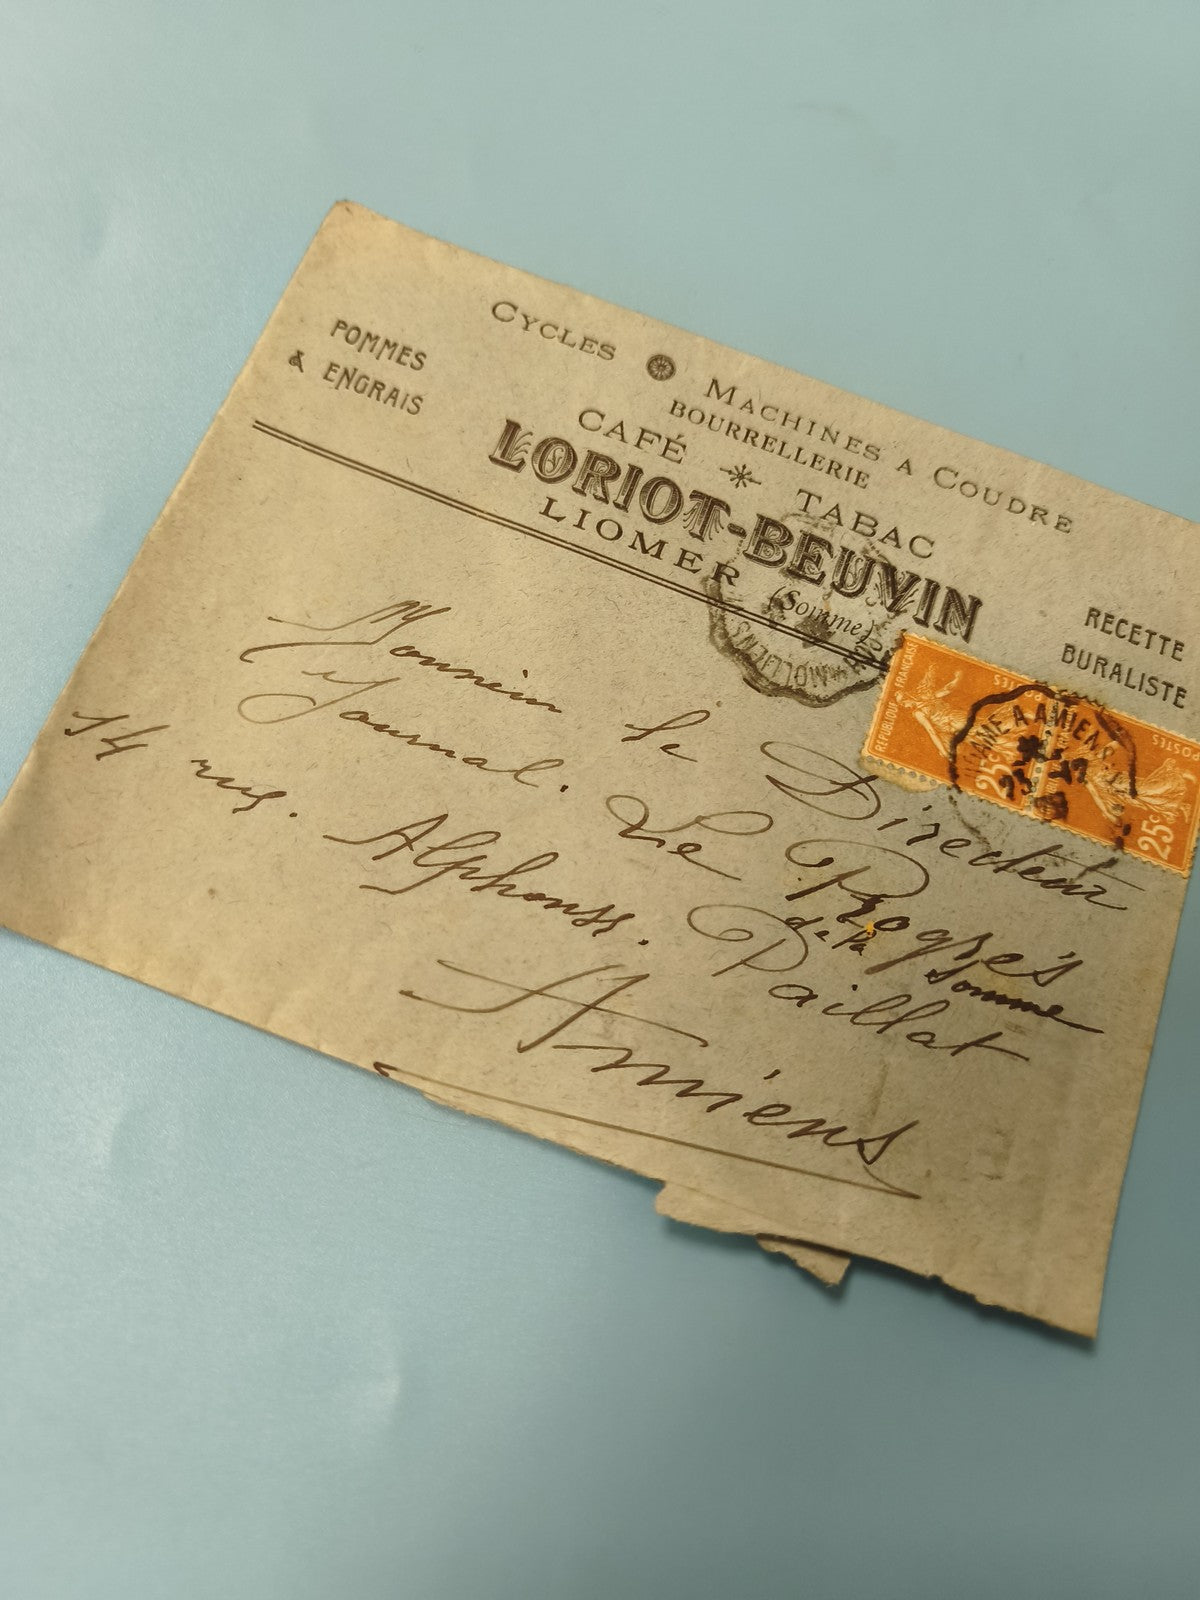 CYCLES MACHINES A COUDRE
BOURRELLERIE
POMMES
& ENGRAIS
CAFÉ TABAC
LORIOT-BEUVIN
LIOMER (Somme)
RECETTE
BURALISTE
RÉPUBLIQUE FRANÇAISE
POSTES
25c
25c
A AMIENS
MOLLIENS
Monsieur le Directeur
du Journal. Le Progrès
de la Somme
14 rue. Alphonse. Paillat
Amiens